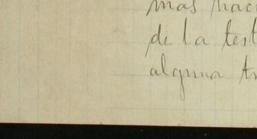 mas hac
de la test
alguna tr